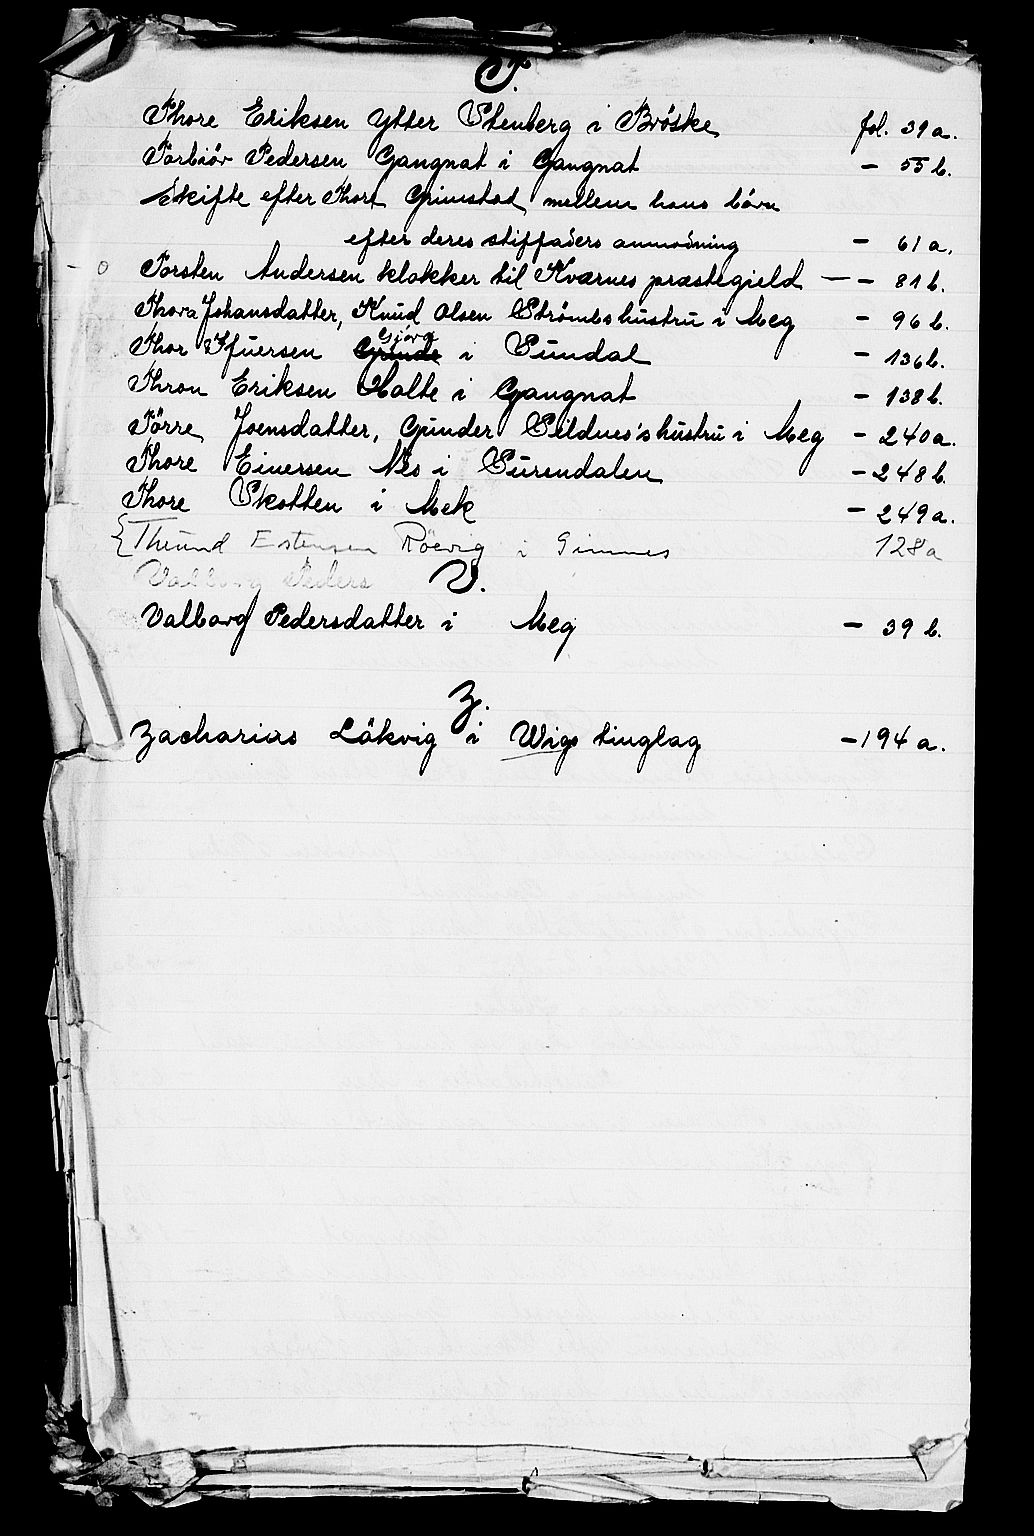 T.
Thore Eriksen Ytter Stenberg i Bröske fol. 39a.
Torbiör Pedersen Gangnat i Gangnat - 55 b.
Skifte efter Thort Grimstad mellem hans börn
efter deres stiffaders anmodning - 61 a.
- o Torsten Andersen klokker til Kvernes præstegield - - 81 b.
Thora Johansdatter, Knud Olsen Ströms hustru i Meg - 96 b.
Gjöra
Thor Ifuersen Grinde i Sundal - 136 b.
Thron Eriksen Halte i Gangnat - 138 b.
Törre Joensdatter, Gunder Seildnes's hustru i Meg - 240a.
Thore Einersen Nes i Surendalen - 248 b.
Thore Skotten i Mek - 249 a.
{ Estensen Röevig i Gimnes 128a
Valborg Peders V.
Valborg Pedersdatter i Meg - 39 b.
Z.
Zacharias Läkvig i Wigs tinglag - 194 a.